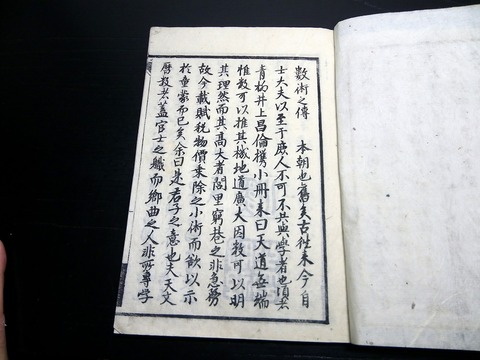 數術之傳 本朝也舊矣古徃來今自
士大夫以至于庶人不可不其與學者也頃者
青柳井上昌倫携小冊来曰天道無端
惟数可以推其機地道廣大因数可以明
其理然而其髙大者閭里窮巷之非急務
故今載賦税物價乗除之小術而欲以示
於童蒙而已矣余曰是君子之意也夫天文
暦数者蓋官士之職而郷曲之人非所專学